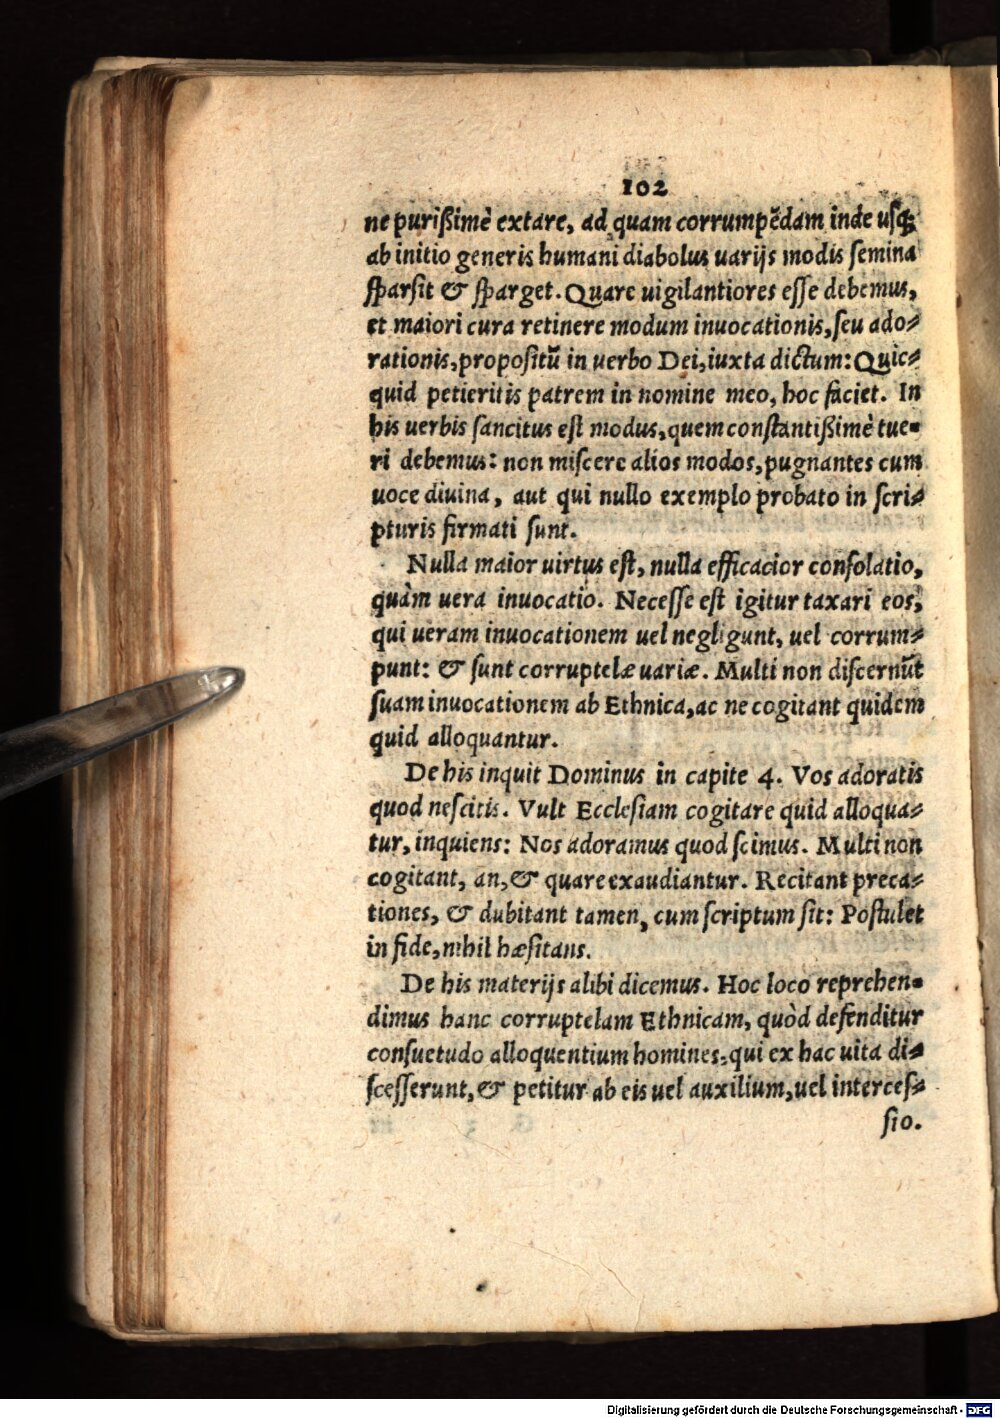 102
ne purißimè extare, ad quam corrumpẽdam inde usq;
ab initio generis humani diabolus uarijs modis semina
sparsit & sparget. Quare uigilantiores esse debemus,
et maiori cura retinere modum inuocationis, seu ado⸗
rationis, propositũ in uerbo Dei, iuxta dictum: Quic⸗
quid petieritis patrem in nomine meo, hoc faciet. In
his uerbis sancitus est modus, quem constantißimè tue⸗
ri debemus: non miscere alios modos, pugnantes cum
uoce diuina, aut qui nullo exemplo probato in scri⸗
pturis firmati sunt.
Nulla maior uirtus est, nulla efficacior consolatio,
quàm uera inuocatio. Necesse est igitur taxari eos,
qui ueram inuocationem uel negligunt, uel corrum⸗
punt: & sunt corruptelæ uariæ. Multi non discernũt
suam inuocationem ab Ethnica, ac ne cogitant quidem
quid alloquantur.
De his inquit Dominus in capite 4. Vos adoratis
quod nescitis. Vult Ecclesiam cogitare quid alloqua⸗
tur, inquiens: Nos adoramus quod scimus. Multi non
cogitant, an, & quare exaudiantur. Recitant preca⸗
tiones, & dubitant tamen, cum scriptum sit: Postulet
in fide, nihil hæsitans.
De his materijs alibi dicemus. Hoc loco reprehen⸗
dimus hanc corruptelam Ethnicam, quòd defenditur
consuetudo alloquentium homines, qui ex hac uita di⸗
scesserunt, & petitur ab eis uel auxilium, uel interces⸗
sio.
Digitalisierung gefördert durch die Deutsche Forschungsgemeinschaft - DFG